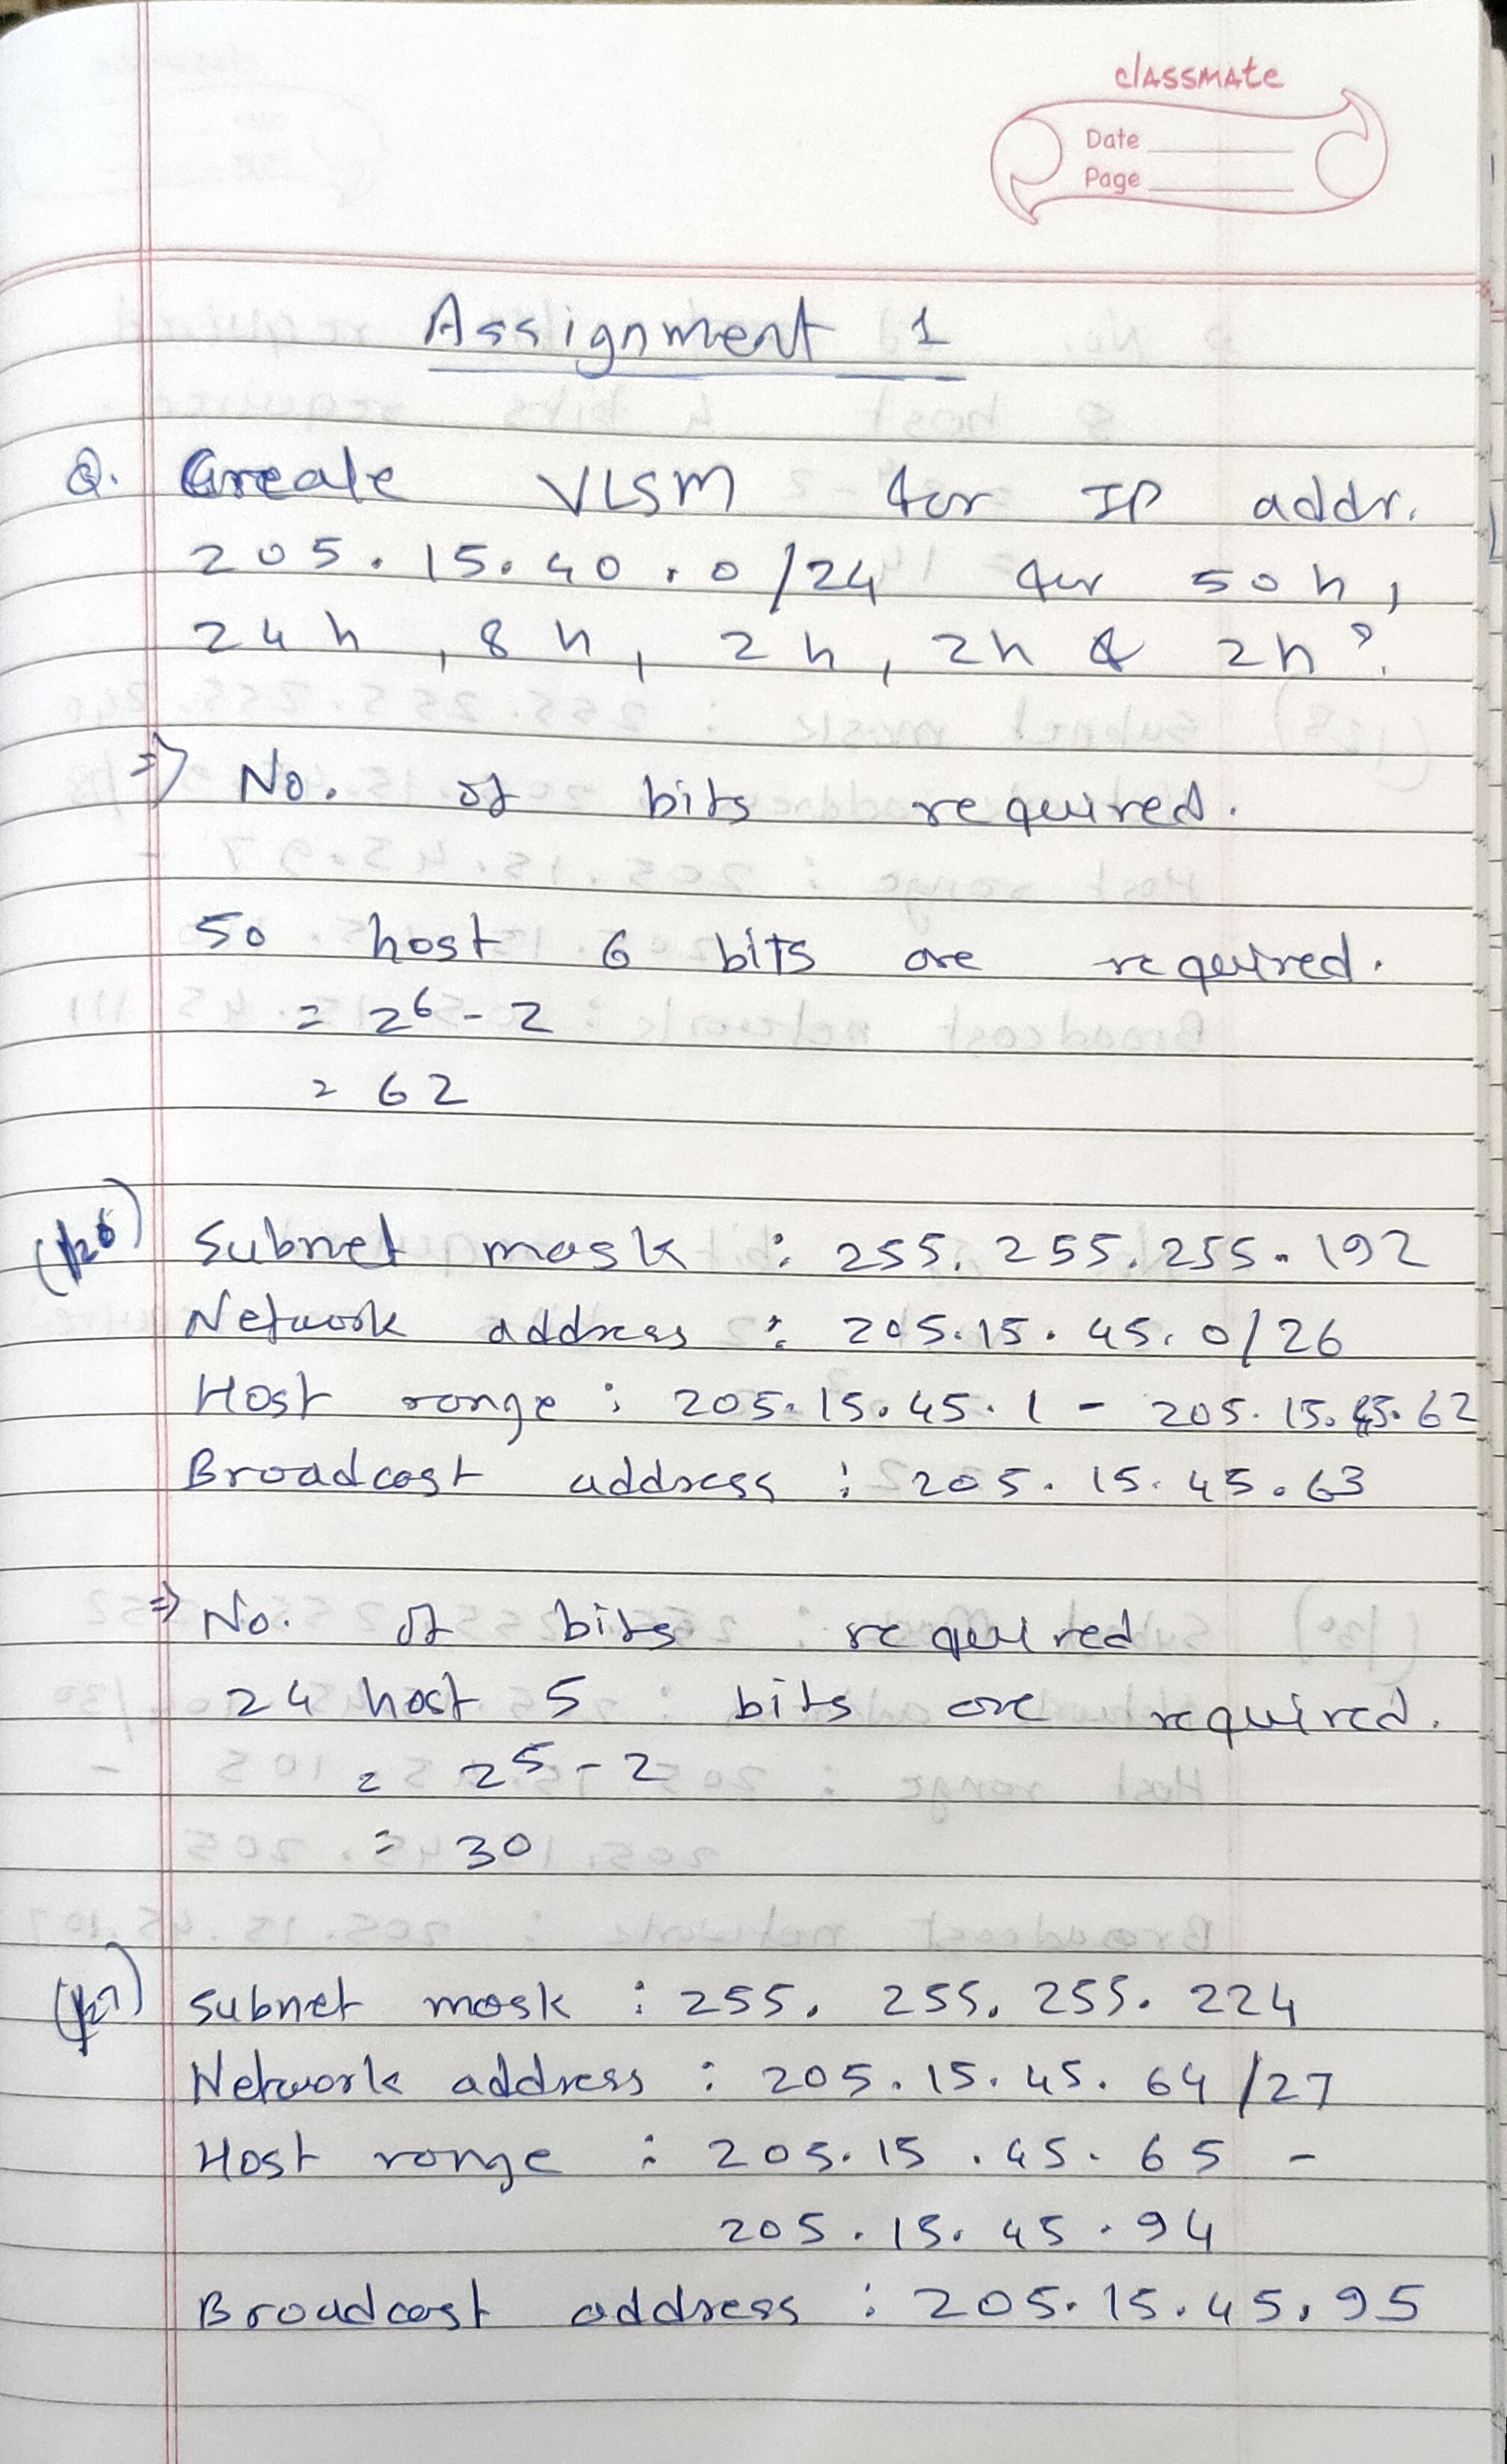 classmate
Date
Page
Assignment 1
Q. Create VLSM for IP addr.
205.15.40.0/24 for 50h,
24h, 8h, 2h, 2h & 2h?
=> No. of bits required.
50 host 6 bits are required.
= 2^6 - 2
= 62
(/26) Subnet mask : 255.255.255.192
Network address : 205.15.45.0/26
Host range : 205.15.45.1 - 205.15.45.62
Broadcast address : 205.15.45.63
=> No. of bits required
24 host 5 bits are required.
= 2^5 - 2
= 30
(/27) subnet mask : 255.255.255.224
Network address : 205.15.45.64/27
Host range : 205.15.45.65 -
205.15.45.94
Broadcast address : 205.15.45.95